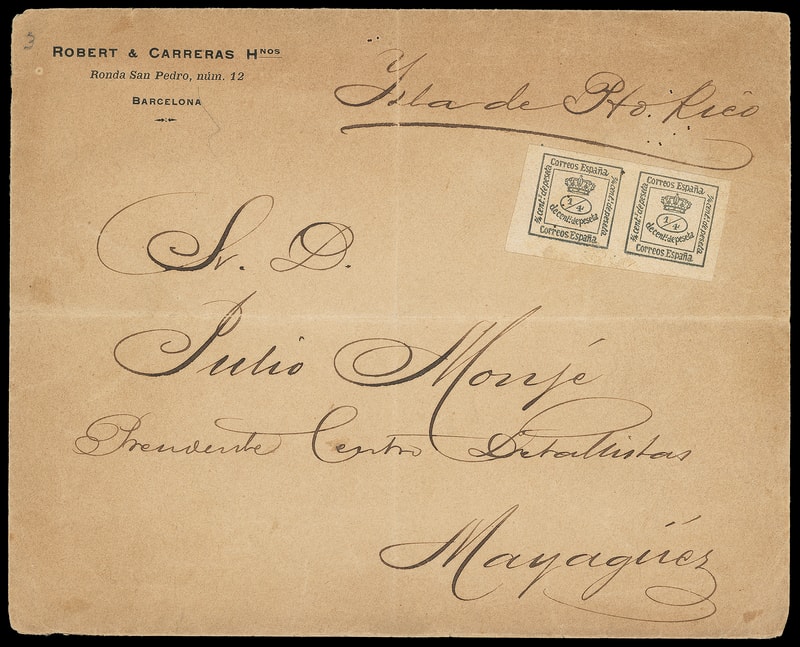 ROBERT & CARRERAS HNOS
Ronda San Pedro, núm. 12
BARCELONA
Ysla de Pto. Rico
Correos España
¼ cent: de peseta
1/4
de cent: de peseta
¼ cent: de peseta
Correos España
Correos España
¼ cent: de peseta
1/4
de cent: de peseta
¼ cent: de peseta
Correos España
Sr. D.
Julio Monjé
Presidente Centro Detallistas
Mayagüez